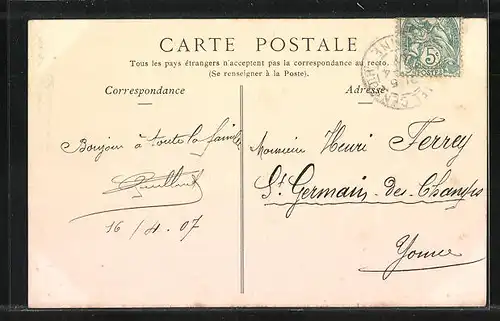 CARTE POSTALE
Tous les pays étrangers n'acceptent pas la correspondance au recto.
(Se renseigner à la Poste).
Correspondance
Adresse
5c
POSTES
Bonjour à toute la famille
16/4.07
Monsieur Henri Ferrey
St Germain-des-Champs
Yonne